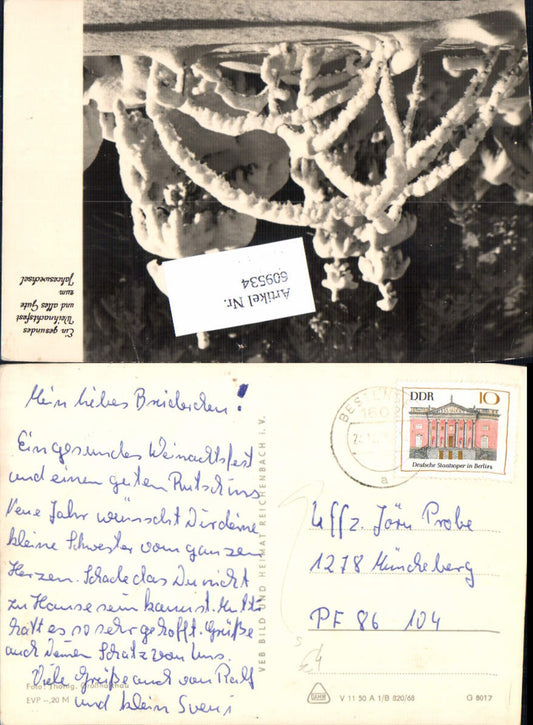 Ein gesundes
Weihnachtsfest
und alles Gute
zum
Jahreswechsel
Artikel Nr.
609534
Mein liebes Brüderchen!
Ein gesundes Weinachtsfest
und einen guten Rutsch ins
Neue Jahr wünscht Dir deine
kleine Schwester vom ganzen
Herzen. Schade das Du nicht
zu Hause sein kannst. Mutti
hatt es so sehr gehofft. Grüße
auch Deinen Schatz von Uns.
Viele Grüße auch von Ralf
und klein Sveni
VEB BILD UND HEIMAT REICHENBACH I. V.
Foto: Thonig,
EVP -,20 M
1602
a
DDR 10
Deutsche Staatsoper in Berlin
Uffz. Jörn Probe
1278 Müncheberg
PF 86 104
V 11 50 A 1/B 820/68
G 8017